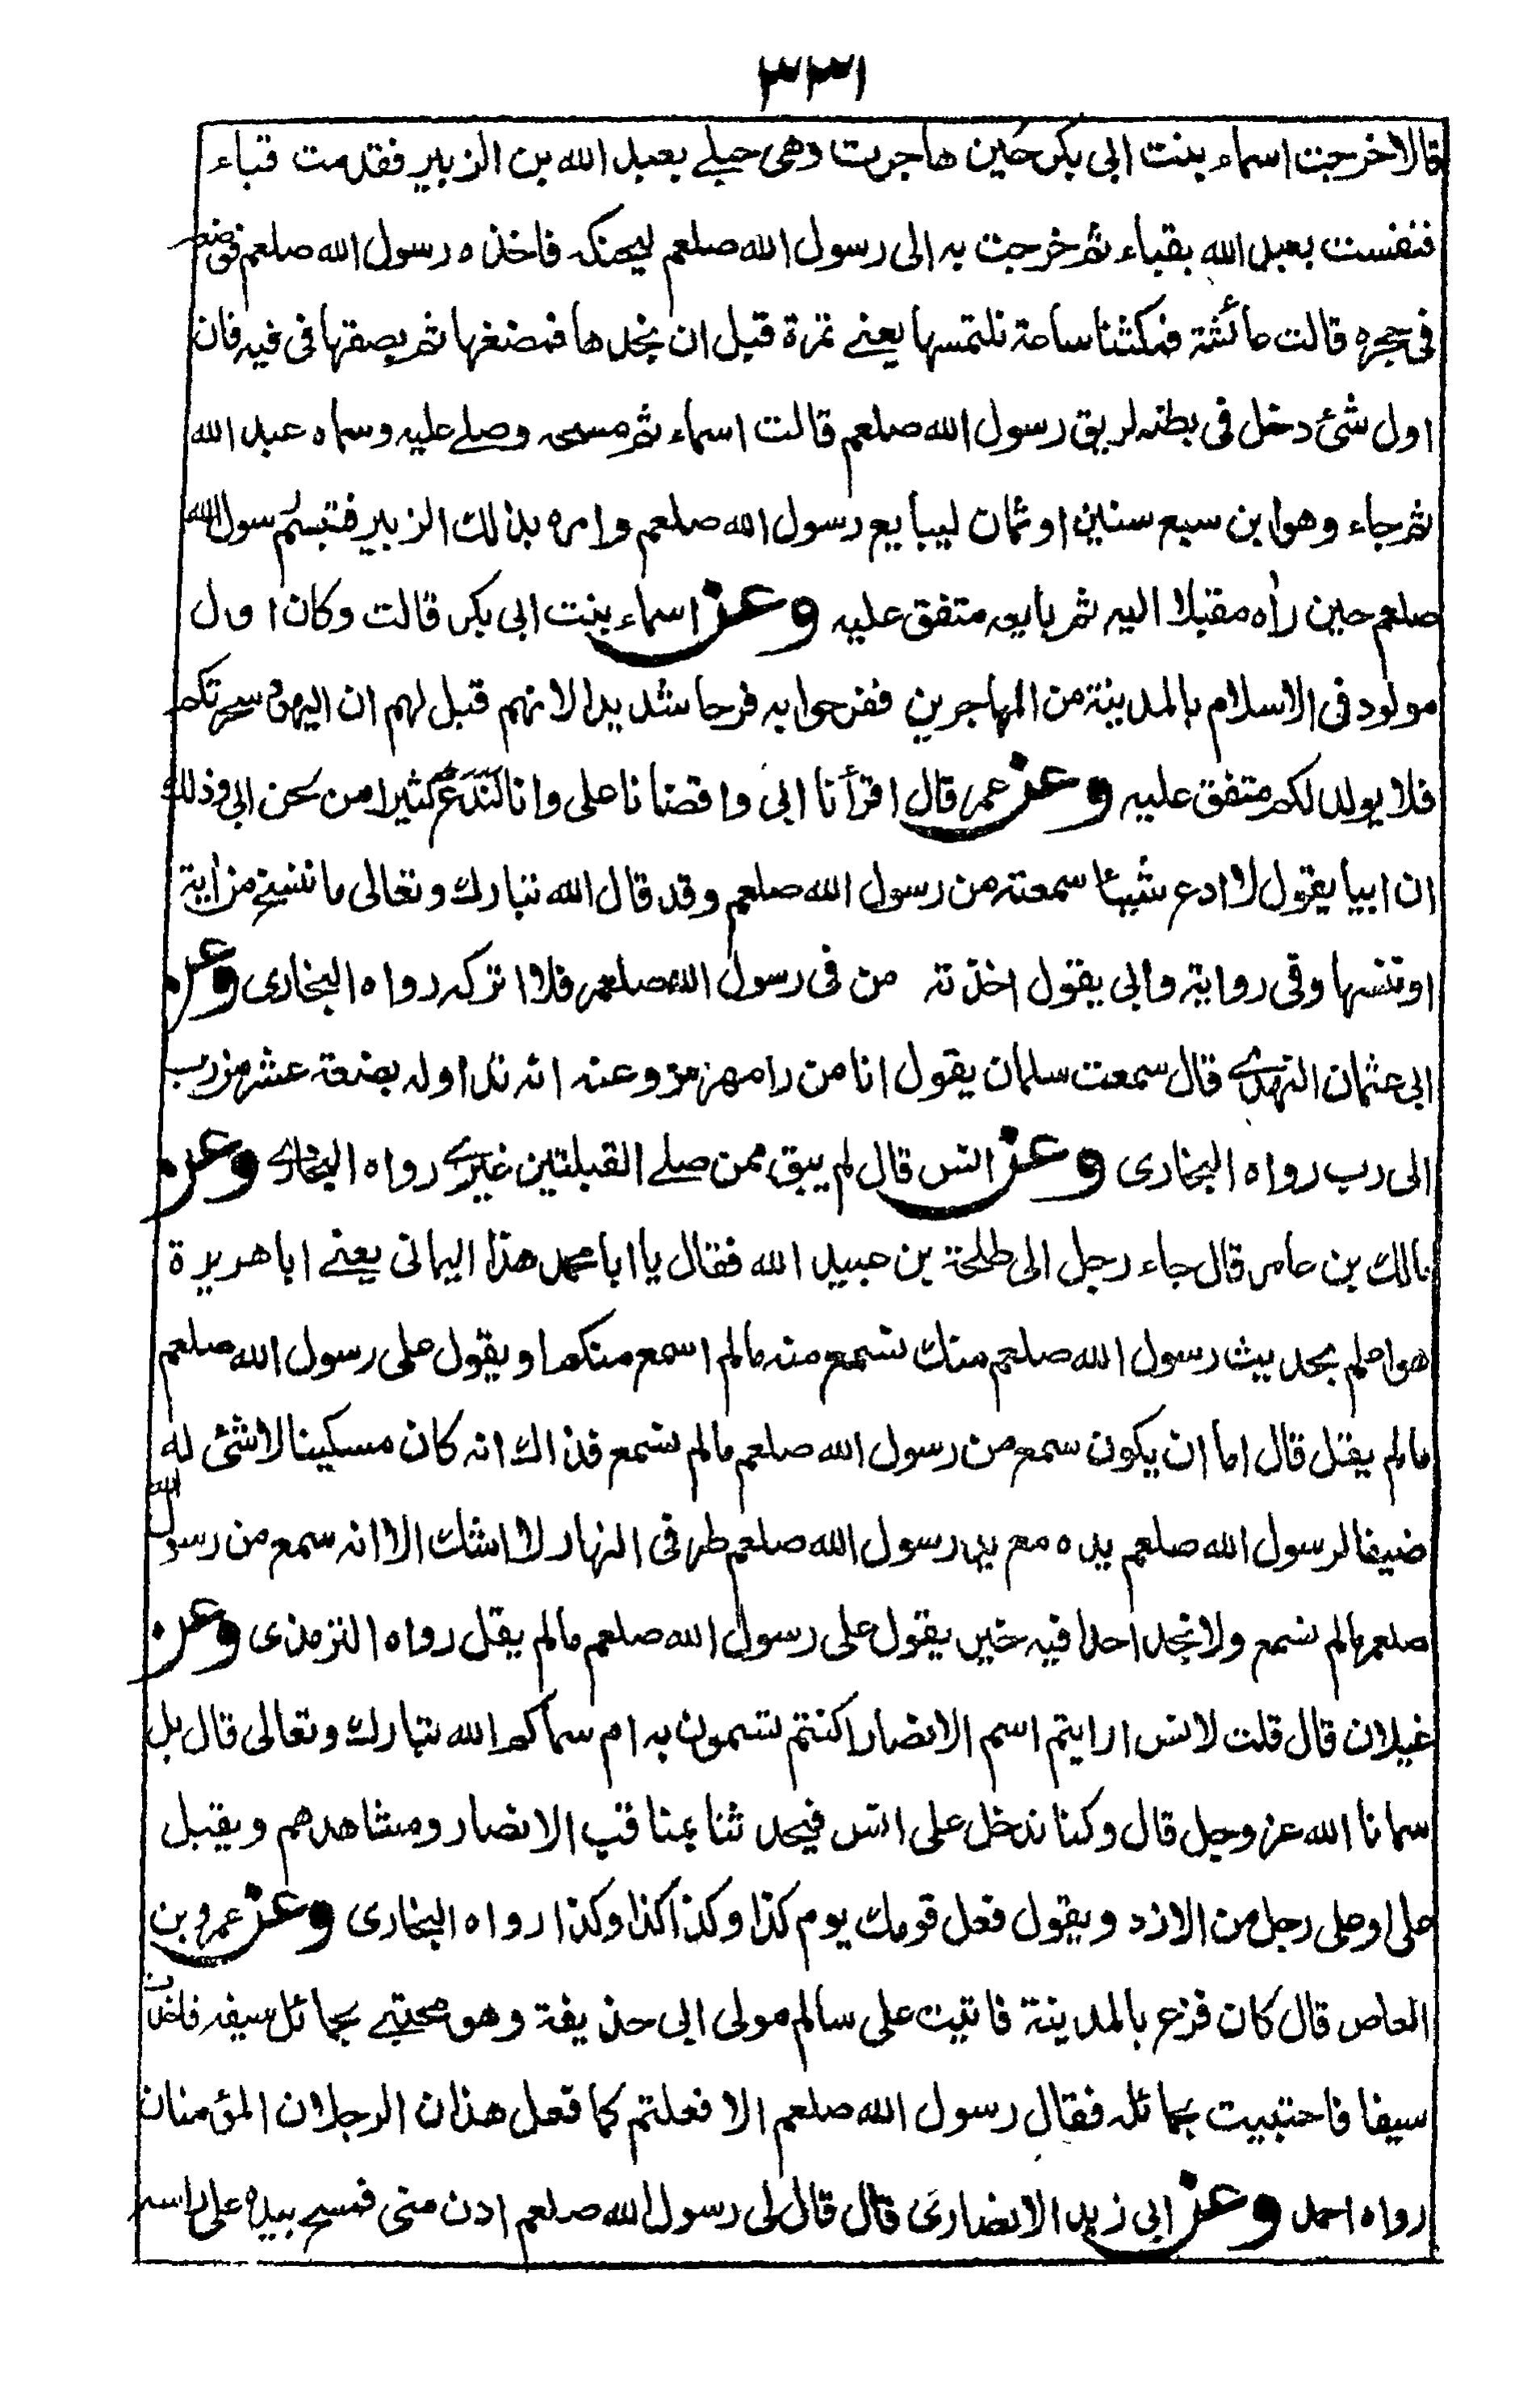 ٣٣١
قالا خرجت اسماء بنت ابی بکر حین هاجرت وهی حبلے بعبد الله بن الزبیر فقدمت قباء
فنفست بعبد الله بقباء ثم خرجت به الی رسول الله صلعم لیحنکه فاخذه رسول الله صلعم فوضعه
فی حجره قالت عائشة فمکثنا ساعة نلتمسها یعنے تمرة قبل ان نجدها فمضغها ثم بصقها فی فیه فان
اول شئ دخل فی بطنه لریق رسول الله صلعم قالت اسماء ثم مسحه وصلے علیه وسماه عبد الله
ثم جاء وهو ابن سبع سنین او ثمان لیبایع رسول الله صلعم وامره بذالك الزبیر فتبسم رسول الله
صلعم حین رأه مقبلا الیه ثم بایعه متفق علیه وعن اسماء بنت ابی بکر قالت وکان اول
مولود فی الاسلام بالمدینة من المهاجرین ففرحوا به فرحا شدیدا لانهم قیل لهم ان الیهود سحرتکم
فلا یولد لکم متفق علیه وعن عمر قال اقرأنا ابی واقضانا علی وانا لندع کثیرا من لحن ابی وذلك
ان ابیا یقول لا ادع شیئا سمعته من رسول الله صلعم وقد قال الله تبارك وتعالی ما ننسخ من اٰیة
او ننسها وفی روایة وابی یقول اخذته من فی رسول الله صلعم فلا اترکه رواه البخاری وعن
ابی عثمان النهدے قال سمعت سلمان یقول انا من رامهرمز وعنه انه تداوله بضعة عشر من رب
الی رب رواه البخاری وعن انس قال لم یبق ممن صلے القبلتین غیرے رواه البخارے وعن
مالك بن عامر قال جاء رجل الی طلحة بن عبید الله فقال یا ابا محمد هذا الیمانی یعنے ابا هریرة
هو اعلم بحدیث رسول الله صلعم منك نسمع منه ما لم اسمع منکم او یقول علی رسول الله صلعم
ما لم یقل قال اما ان یکون سمع من رسول الله صلعم ما لم نسمع فذاك انه کان مسکینا لا شئ له
ضیفا لرسول الله صلعم یده مع ید رسول الله صلعم طرفی النهار لا اشك الا انه سمع من رسول الله
صلعم ما لم نسمع ولا نجد احدا فیه خیر یقول علی رسول الله صلعم ما لم یقل رواه الترمذی وعن
غیلان قال قلت لانس ارایتم اسم الانصار اکنتم تسمون به ام سماکم الله تبارك وتعالی قال بل
سمانا الله عز وجل قال وکنا ندخل علی انس فیحدثنا بمناقب الانصار ومشاهدهم ویقبل
علی او علی رجل من الازد ویقول فعل قومك یوم کذا وکذا کذا وکذا رواه البخاری وعن عمرو بن
العاص قال کان فزع بالمدینة فاتیت علی سالم مولی ابی حذیفة وهو محتبے بحمائل سیفه فاخذت
سیفا فاحتبیت بحمائله فقال رسول الله صلعم الا فعلتم کما فعل هذان الرجلان المؤمنان
رواه احمد وعن ابی زید الانصاری قال قال لی رسول الله صلعم ادن منی فمسح بیده علی راسه